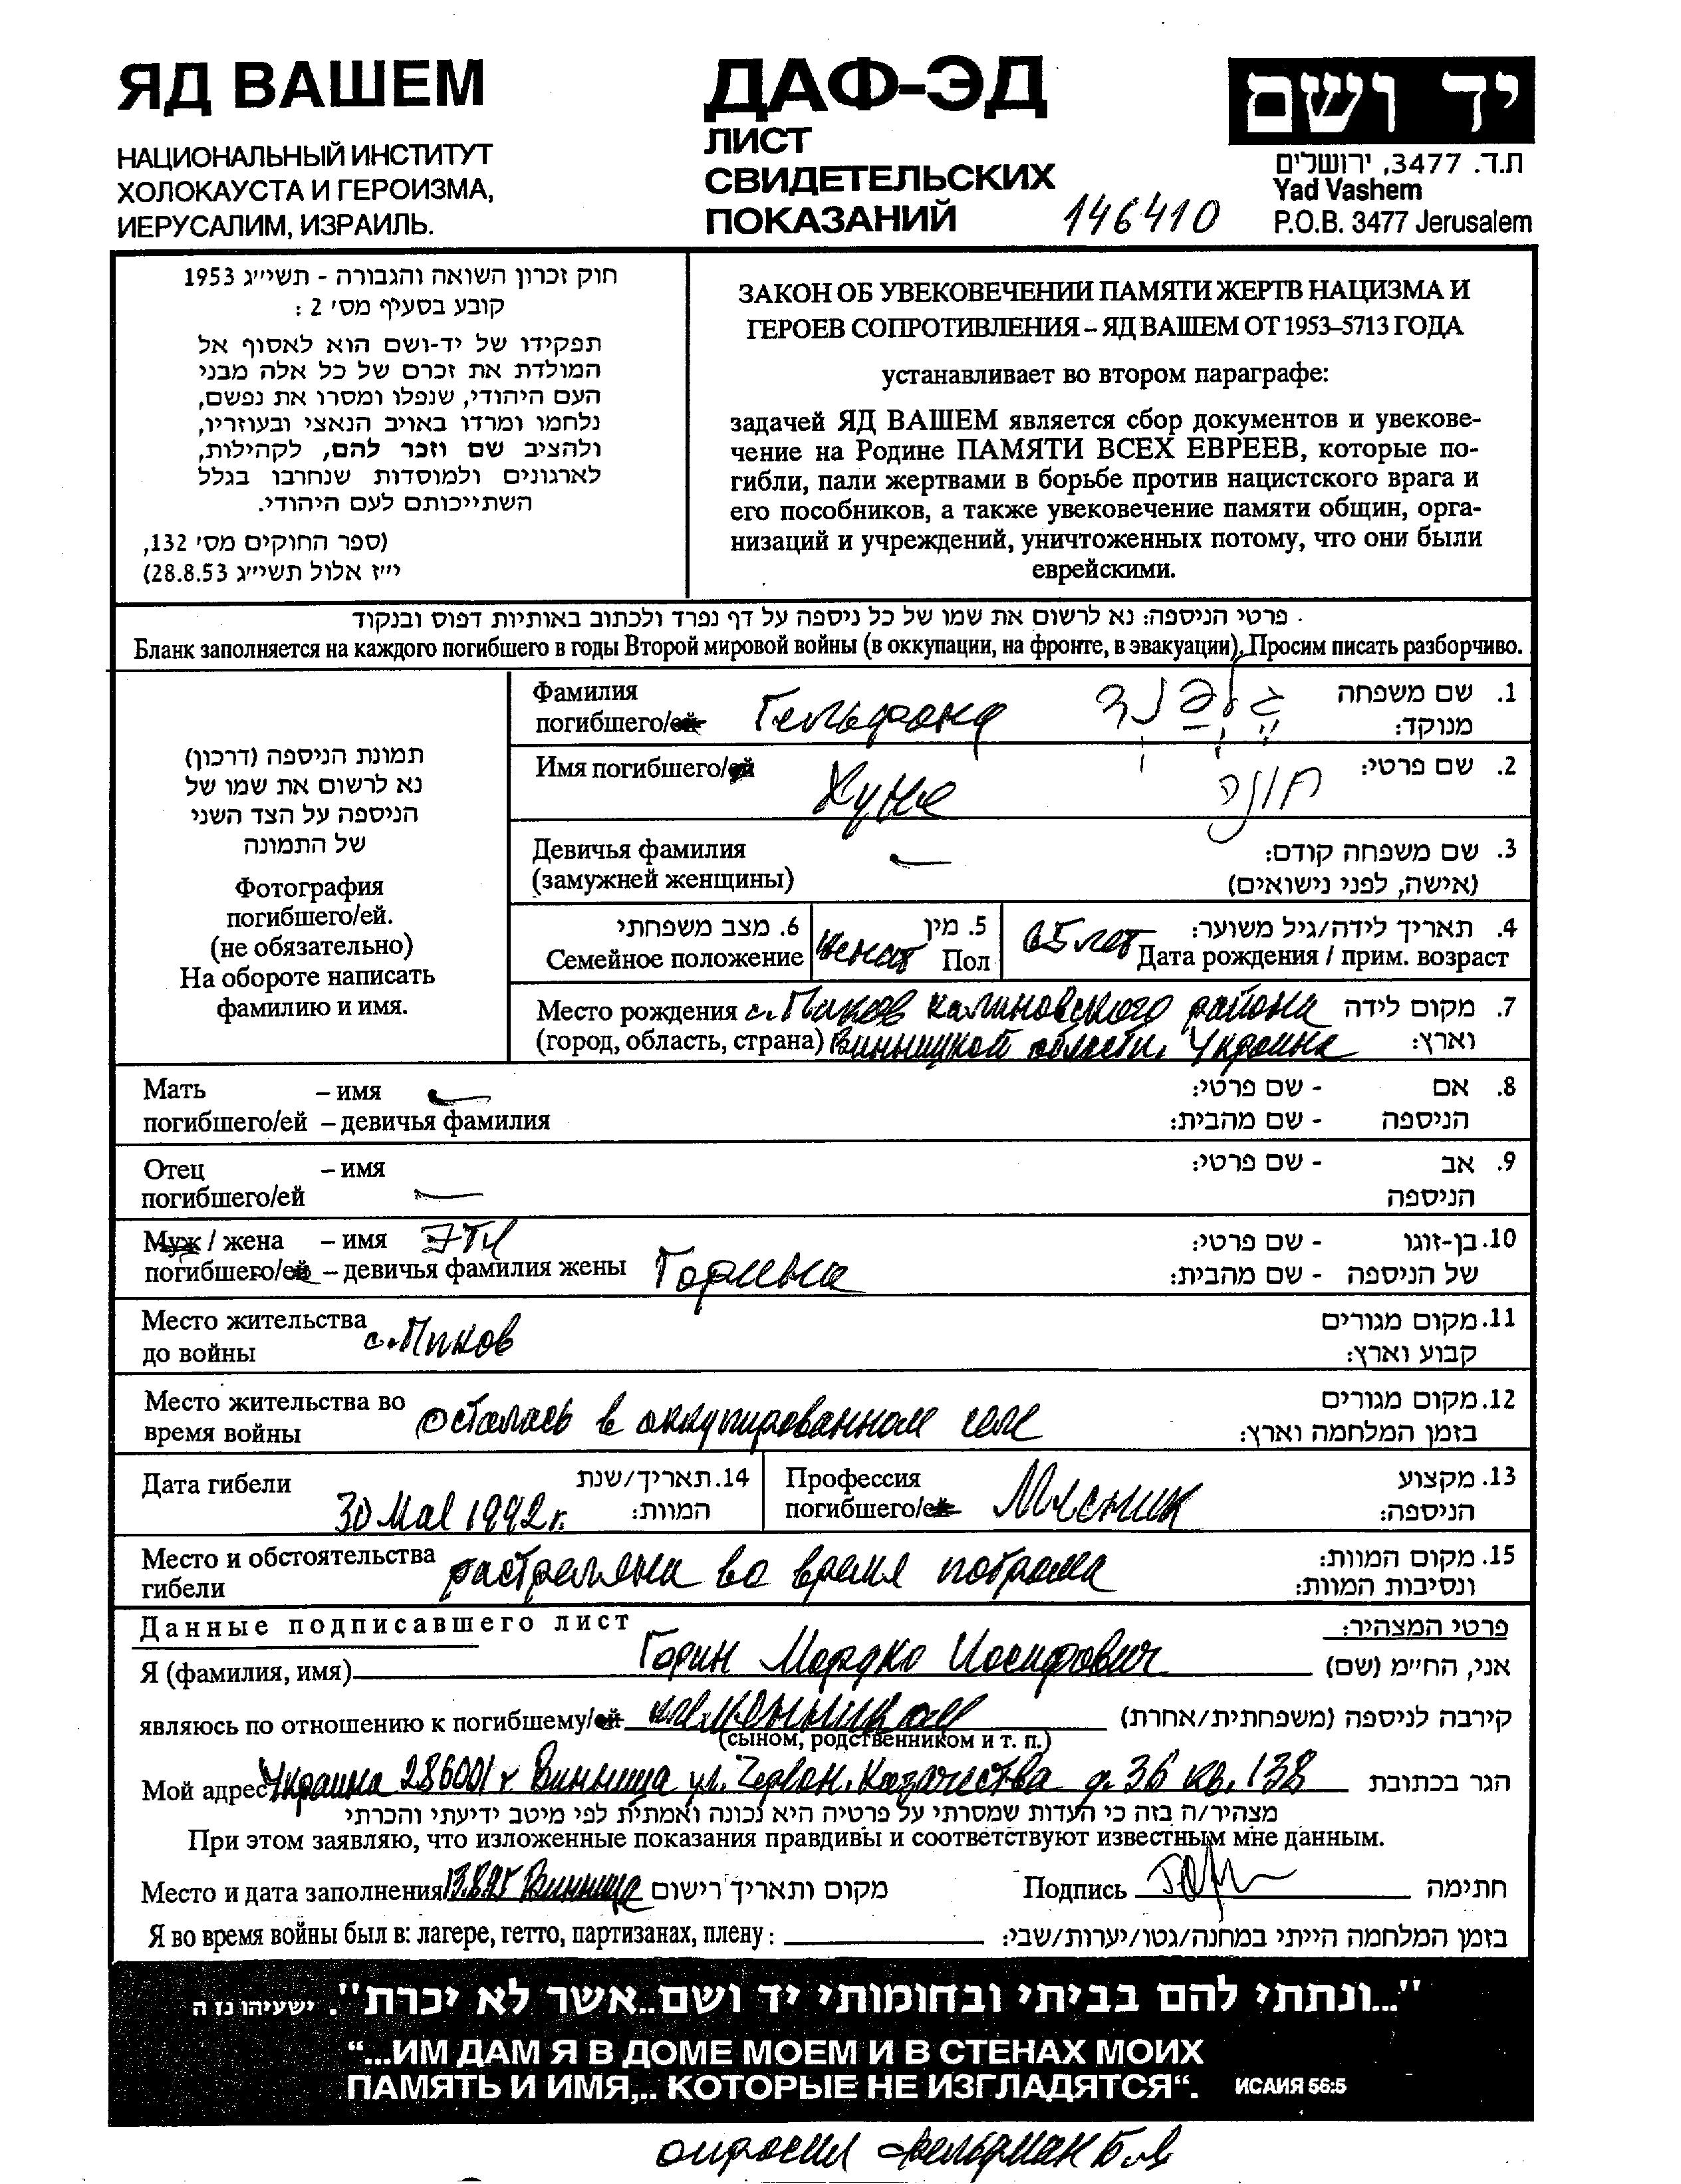 ЯД ВАШЕМ
НАЦИОНАЛЬНЫЙ ИНСТИТУТ
ХОЛОКАУСТА И ГЕРОИЗМА,
ИЕРУСАЛИМ, ИЗРАИЛЬ.
ДАФ-ЭД
ЛИСТ
СВИДЕТЕЛЬСКИХ
ПОКАЗАНИЙ 146410
יד ושם
ת.ד. 3477, ירושלים
Yad Vashem
P.O.B. 3477 Jerusalem
חוק זכרון השואה והגבורה - תשי״ג 1953
קובע בסעיף מס׳ 2 :
תפקידו של יד-ושם הוא לאסוף אל
המולדת את זכרם של כל אלה מבני
העם היהודי, שנפלו ומסרו את נפשם,
נלחמו ומרדו באויב הנאצי ובעוזריו,
ולהציב שם וזכר להם, לקהילות,
לארגונים ולמוסדות שנחרבו בגלל
השתייכותם לעם היהודי.
(ספר החוקים מס׳ 132,
י״ז אלול תשי״ג 28.8.53)
ЗАКОН ОБ УВЕКОВЕЧЕНИИ ПАМЯТИ ЖЕРТВ НАЦИЗМА И
ГЕРОЕВ СОПРОТИВЛЕНИЯ – ЯД ВАШЕМ ОТ 1953–5713 ГОДА
устанавливает во втором параграфе:
задачей ЯД ВАШЕМ является сбор документов и увекове-
чение на Родине ПАМЯТИ ВСЕХ ЕВРЕЕВ, которые по-
гибли, пали жертвами в борьбе против нацистского врага и
его пособников, а также увековечение памяти общин, орга-
низаций и учреждений, уничтоженных потому, что они были
еврейскими.
פרטי הניספה: נא לרשום את שמו של כל ניספה על דף נפרד ולכתוב באותיות דפוס ובנקוד
Бланк заполняется на каждого погибшего в годы Второй мировой войны (в оккупации, на фронте, в эвакуации). Просим писать разборчиво.
תמונת הניספה (דרכון)
נא לרשום את שמו של
הניספה על הצד השני
של התמונה
Фотография
погибшего/ей.
(не обязательно)
На обороте написать
фамилию и имя.
Фамилия 1. שם משפחה
погибшего/ей Гельфанд גלפנד מנוקד:
Имя погибшего/ей Хуна חונה 2. שם פרטי:
Девичья фамилия 3. שם משפחה קודם:
(замужней женщины) (אישה, לפני נישואים)
6. מצב משפחתי 5. מין 4. תאריך לידה/גיל משוער:
Семейное положение женат Пол 65 лет Дата рождения / прим. возраст
Место рождения с. Пиков Калиновского района 7. מקום לידה
(город, область, страна) Винницкой области, Украина וארץ:
Мать – имя - שם פרטי: 8. אם
погибшего/ей – девичья фамилия - שם מהבית: הניספה
Отец – имя - שם פרטי: 9. אב
погибшего/ей הניספה
Муж / жена – имя Эти - שם פרטי: 10. בן-זוגו
погибшего/ей – девичья фамилия жены Горина - שם מהבית: של הניספה
Место жительства с. Пиков 11. מקום מגורים
до войны קבוע וארץ:
Место жительства во 12. מקום מגורים
время войны остались в оккупированном селе בזמן המלחמה וארץ:
Дата гибели 14. תאריך/שנת
30 мая 1942 г. המוות:
Профессия 13. מקצוע
погибшего/ей Мясник הניספה:
Место и обстоятельства 15. מקום המוות:
гибели растреляны во время погрома ונסיבות המוות:
Данные подписавшего лист פרטי המצהיר:
Я (фамилия, имя) Горин Мордко Иосифович אני, החי״מ (שם)
являюсь по отношению к погибшему/ей племянником קירבה לניספה (משפחתית/אחרת)
(сыном, родственником и т. п.)
Мой адрес Украина 286001 г. Винница ул. Червон. Казачества д. 36 кв. 138 הגר בכתובת
מצהיר/ה בזה כי העדות שמסרתי על פרטיה היא נכונה ואמתית לפי מיטב ידיעתי והכרתי
При этом заявляю, что изложенные показания правдивы и соответствуют известным мне данным.
Место и дата заполнения 13.8.95 Винница מקום ותאריך רישום Подпись חתימה
Я во время войны был в: лагере, гетто, партизанах, плену : בזמן המלחמה הייתי במחנה/גטו/יערות/שבי:
"...ונתתי להם בביתי ובחומותי יד ושם..אשר לא יכרת". ישעיהו נז ה
“...ИМ ДАМ Я В ДОМЕ МОЕМ И В СТЕНАХ МОИХ
ПАМЯТЬ И ИМЯ,.. КОТОРЫЕ НЕ ИЗГЛАДЯТСЯ“. ИСАИЯ 56:5
опросил Фельдман Б.